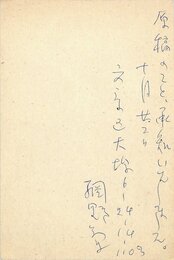 原稿のこと、承知いたしました。
十月廿二日
文京区大塚6-24-14-1103
網野